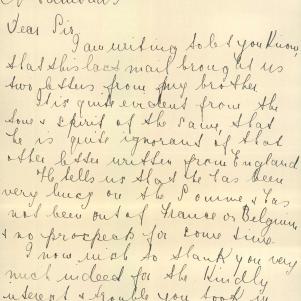 Dear Sir,
I am writing to let you know,
that this last mail brought us
two letters from my brother
It is quite evident from the
tone & spirit of the same, that
he is quite ignorant of that
other letter written from England
He tells us that he has been
very busy on the Somme & has
not been out of France or Belgium
& no prospect for some time
I now wish to thank you very
much indeed for the kindly
interest & trouble you took in